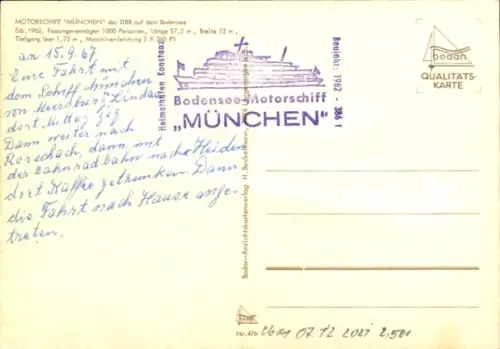 MOTORSCHIFF "MÜNCHEN" der DBB auf dem Bodensee
Erb. 1962, Fassungsvermögen 1000 Personen, Länge 57,5 m, Breite 12 m,
Tiefgang leer 1,72 m, Maschinenleistung 2 X 365 PS
am 15.9.67
Eine Fahrt mit
dem Schiff München
von Meersburg Lindau
dort Mittag
Dann weiter nach
Rorschach, dann mit
der Zahnradbahn nach Heiden
dort Kaffee getrunken. Dann
die Fahrt nach Hause ange-
treten.
Heimathafen Konstanz
Bodensee-Motorschiff
„MÜNCHEN"
Baujahr: 1962 - 361
bodan
QUALITÄTS-
KARTE
Bodan-Ansichtskartenverlag H.
Nr. 426
07 12 2021 2,50